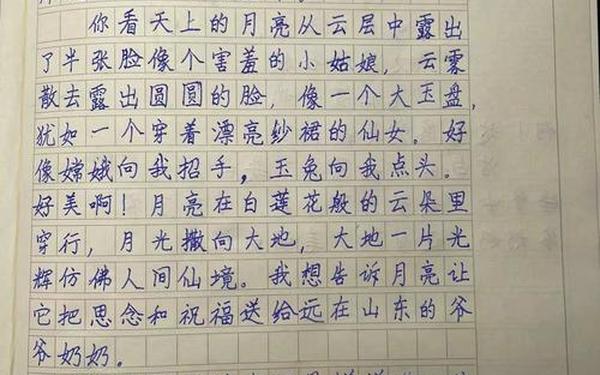 你看天上的月亮从云层中露出
了半张脸像个害羞的小姑娘，云雾
散去露出圆圆的脸，像一个大玉盘，
犹如一个穿着漂亮纱裙的仙女。好
像嫦娥向我招手，玉兔向我点头。
好美啊！月亮在白莲花般的云朵里
穿行，月光撒向大地，大地一片光
辉仿佛人间仙境。我想告诉月亮让
它把思念和祝福送给远在山东的爷
爷奶奶。